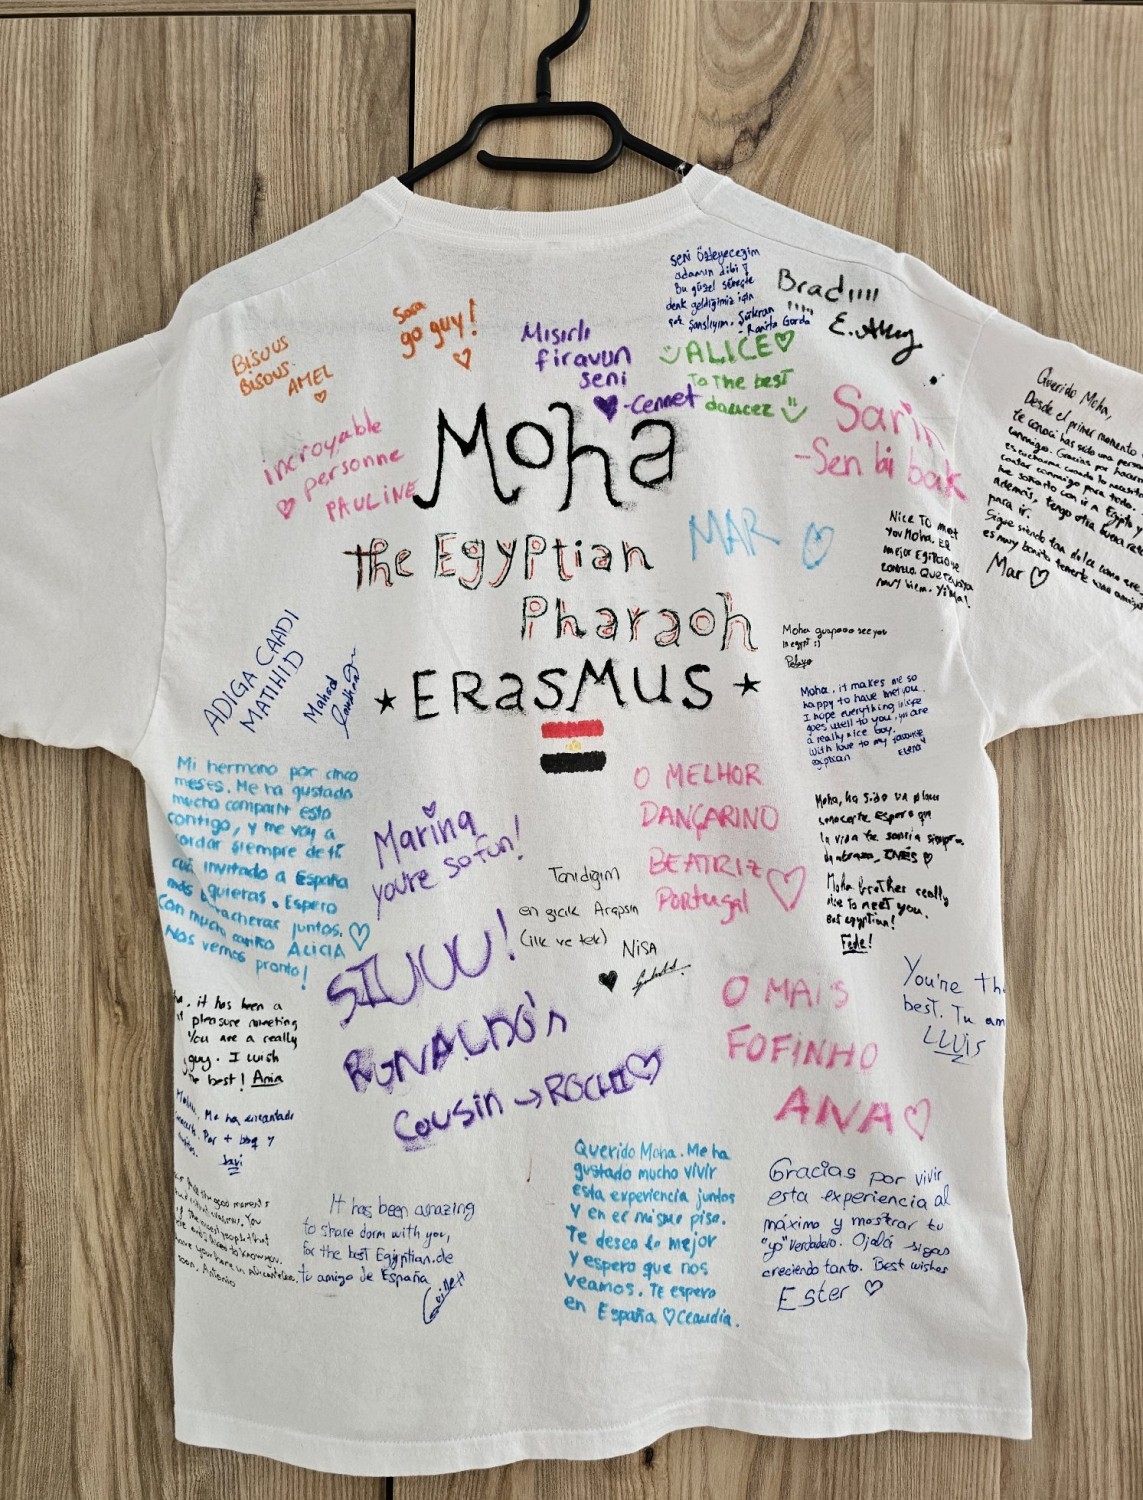 Sara
go guy!
BISOUS
BISOUS.
AMEL
incroyable
personne
PAULINE
Mısırlı
firavun
seni
-Cennet
seni özleyeceğim
adamın dibi
Bu güzel süreçte
denk geldiğimiz için
çok şanslıyım. Şükran
- Ranita Gorda
Brad!!!!
ALICE
To the best
dancer
Sarin
-Sen bi bak
Moha
the Egyptian
Pharaoh
★ ERASMUS ★
MAR
Querido Moha,
Desde el primer momento
te conocí has sido una
conmigo. Gracias por
contar conmigo para todo.
con ir a Egipto y
además, tengo otra buena
para ir.
Sigue siendo tan dulce como
es muy bonito tenerte como
Mar
Nice To met
you Moha. El
mejor Egipcio que
conozco. Que
muy bien.
Moha guapoooo see you
in egypt :)
Pelayo
Moha, it makes me so
happy to have met you.
I hope everything in life
goes well to you, you are
a really nice boy.
With love to my favourite
egiptian
Elena
ADIGA CAADI
MATIHID
Mi hermano por cinco
meses. Me ha gustado
mucho compartir esto
contigo, y me voy a
cordar siempre de ti
invitado a España
más quieras. Espero
juntos.
Con mucho cariño ALICIA
Nos vemos pronto!
Marina
you're so fun!
O MELHOR
DANÇARINO
BEATRIZ
Portugal
Tanıdığım
en gıcık Arapsın
(ilk ve tek)
NISA
Moha, ha sido un placer
conocerte. Espero que
la vida te sonría siempre.
Un abrazo, INÉS
Moha brother really
nice to meet you.
Best egyptian!
Fede!
SIUUU!
RONALDO'n
Cousin → ROCHI
O MAIS
FOFINHO
ANA
You're the
best. Tu am
LLUIS
it has been a
pleasure meeting
You are a really
guy. I wish
best! Ania
Me ha encantado
Por + bbq y
Javi
good moments
You
people that
to know you.
you here in Alicante
soon. Antonio
It has been amazing
to share dorm with you,
for the best Egyptian. de
tu amigo de España
Querido Moha. Me ha
gustado mucho vivir
esta experiencia juntos
y en el mismo piso.
Te deseo lo mejor
y espero que nos
veamos. Te espero
en España Claudia.
Gracias por vivir
esta experiencia al
máximo y mostrar tu
"yo" verdadero. Ojalá sigas
creciendo tanto. Best wishes
Ester